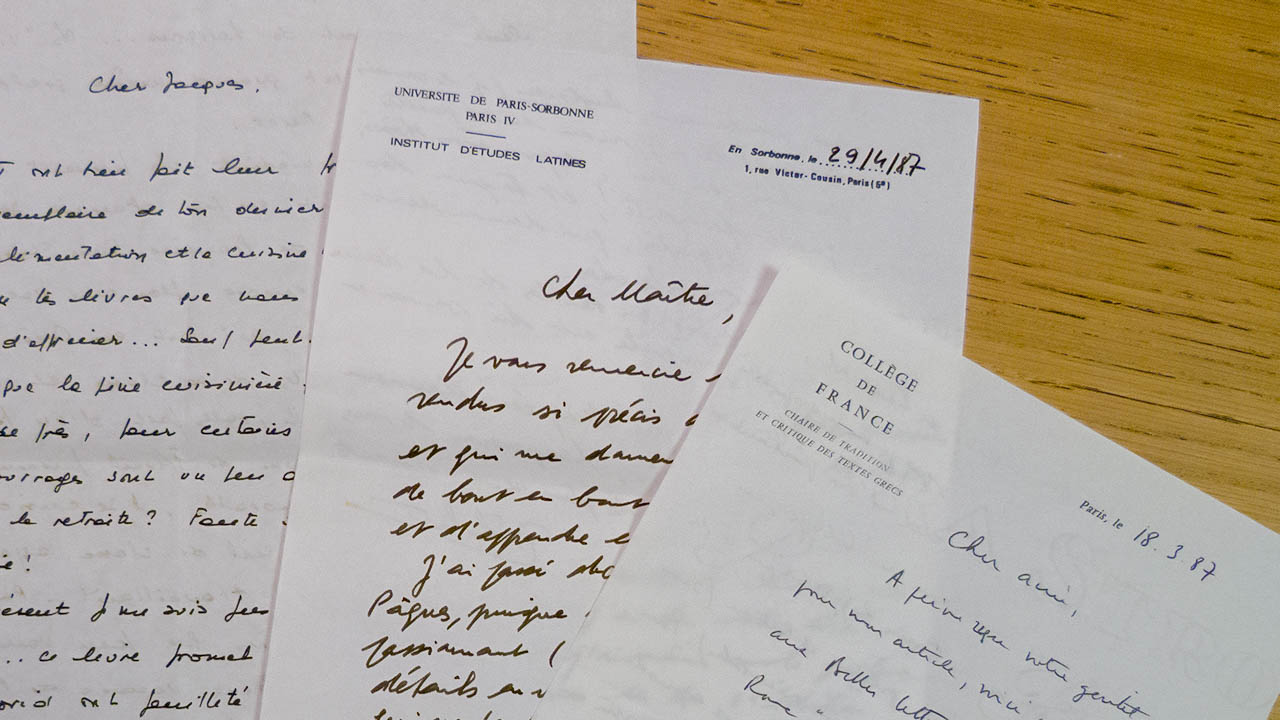 Cher Jacques.
ont bien fait leur
de ton dernier
et la cuisine
les livres que nous
d'apprécier... Sauf peut.
que la fine cuisinière
près, pour certains
sont un peu
la retraite? Faute
!
je me suis
... ce livre promet
ont feuilleté
UNIVERSITE DE PARIS-SORBONNE
PARIS IV
INSTITUT D'ETUDES LATINES
En Sorbonne, le 29/4/87
1, rue Victor-Cousin, Paris (5e)
Cher Maître,
Je vous remercie
rendus si précis
et qui me donnent
de bout en bout
et d'apprendre
J'ai passé
Pâques, puisque
passionnant (
détails
COLLÈGE
DE
FRANCE
CHAIRE DE TRADITION
ET CRITIQUE DES TEXTES GRECS
Paris, le 18.3.87
Cher ami,
A peine reçu votre gentil
pour mon article, voici
aux Belles
Rome "